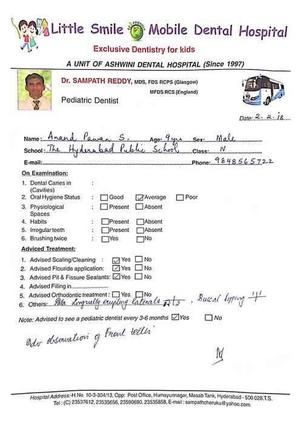 Little Smile Mobile Dental Hospital
Exclusive Dentistry for kids
A UNIT OF ASHWINI DENTAL HOSPITAL (Since 1997)
Dr. SAMPATH REDDY, MDS, FDS RCPS (Glasgow)
MFDS RCS (England)
Pediatric Dentist
Date: 2.2.18
Name: Anand Pawan S. Age: 9yrs Sex: Male
School: The Hyderabad Public School Class: IV
E-mail: Phone: 9848565722
On Examination:
1. Dental Caries in (Cavities) :
2. Oral Hygiene Status : Good Average Poor
3. Physiological Spaces : Present Absent
4. Habits : Present Absent
5. Irregular teeth : Present Absent
6. Brushing twice : Yes No
Adviced Treatment:
1. Advised Scaling/Cleaning : Yes No
2. Advised Flouride application: Yes No
3. Advised Pit & Fissure Sealants: Yes No
4. Advised Filing in
5. Advised Orthodontic treatment : Yes No
6. Others: lingually erupting laterals
Note: Advised to see a pediatric dentist every 3-6 months Yes No
Adv observation of Front teeth
Hospital Address: H.No. 10-3-304/13, Opp: Post Office, Humayunnagar, Masab Tank, Hyderabad - 500 028. T.S.
Tel: (C) 23537612, 23535656, 23590690, 23535858, E-mail : sampathcheruku@yahoo.com.